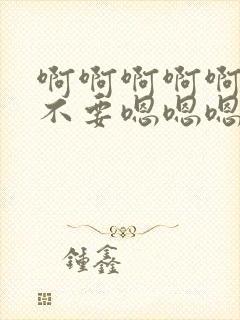 啊啊啊啊啊
不要嗯嗯嗯
锺鑫